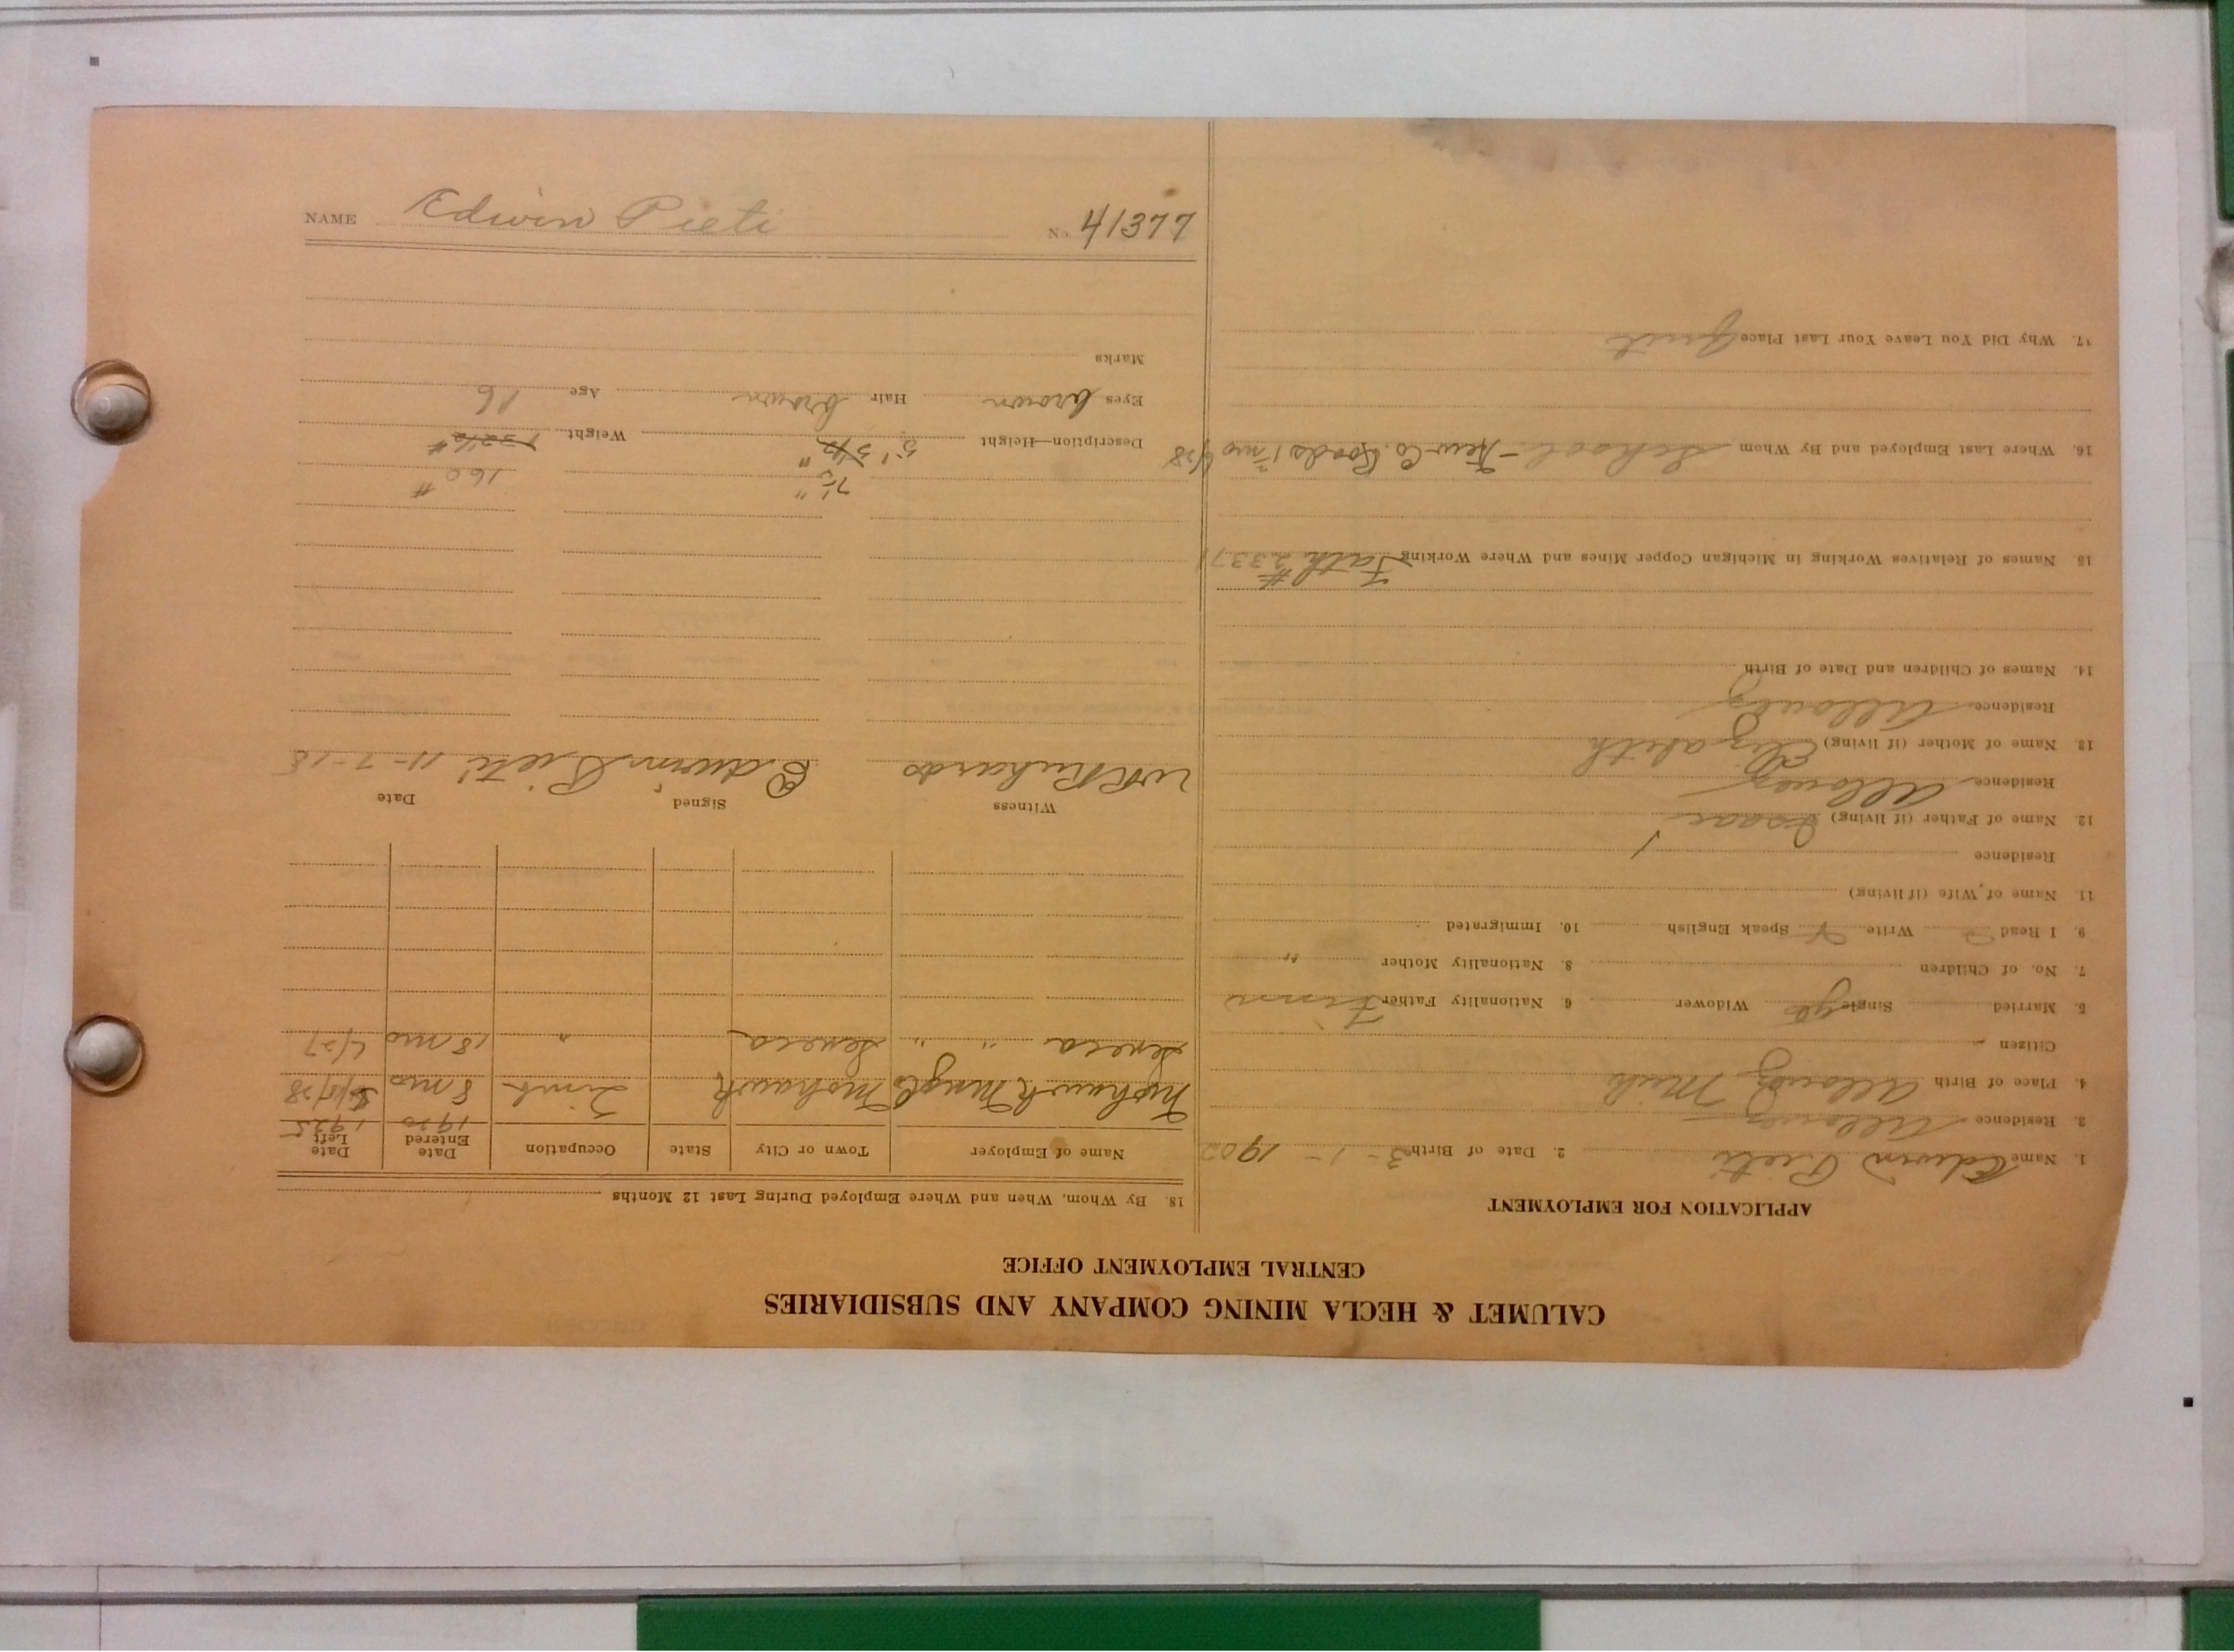 CALUMET & HECLA MINING COMPANY AND SUBSIDIARIES
CENTRAL EMPLOYMENT OFFICE
APPLICATION FOR EMPLOYMENT
1. Name Edwin Pieti 2. Date of Birth 3-1-1902
3. Residence Allouez
4. Place of Birth Allouez Mich
Citizen
5. Married Single yes Widower 6 Nationality Father Finn
7. No. of Children 8. Nationality Mother "
9. I Read Write Speak English 10. Immigrated
11. Name of Wife (if living)
Residence
12. Name of Father (if living) Isaac
Residence Allouez
13. Name of Mother (if living) Elizabeth
Residence Allouez
14. Names of Children and Date of Birth
15. Names of Relatives Working in Michigan Copper Mines and Where Working Fath # 2337
16. Where Last Employed and By Whom School - Kew Co. Roads
17. Why Did You Leave Your Last Place Quit
18. By Whom, When and Where Employed During Last 12 Months
Name of Employer Town or City State Occupation Date Entered Date Left
1920 1925
Mohawk Mng Co Mohawk Timb 8 mo
Seneca " " Seneca " 18 mo 6/27
Witness Signed Date
WR Richards Edwin Pieti 11-7-18
7 1/2" 160 #
Description—Height 5' 5 1/2" Weight 132 1/2 #
Eyes brown Hair brown Age 16
Marks
NAME Edwin Pieti No. 41377